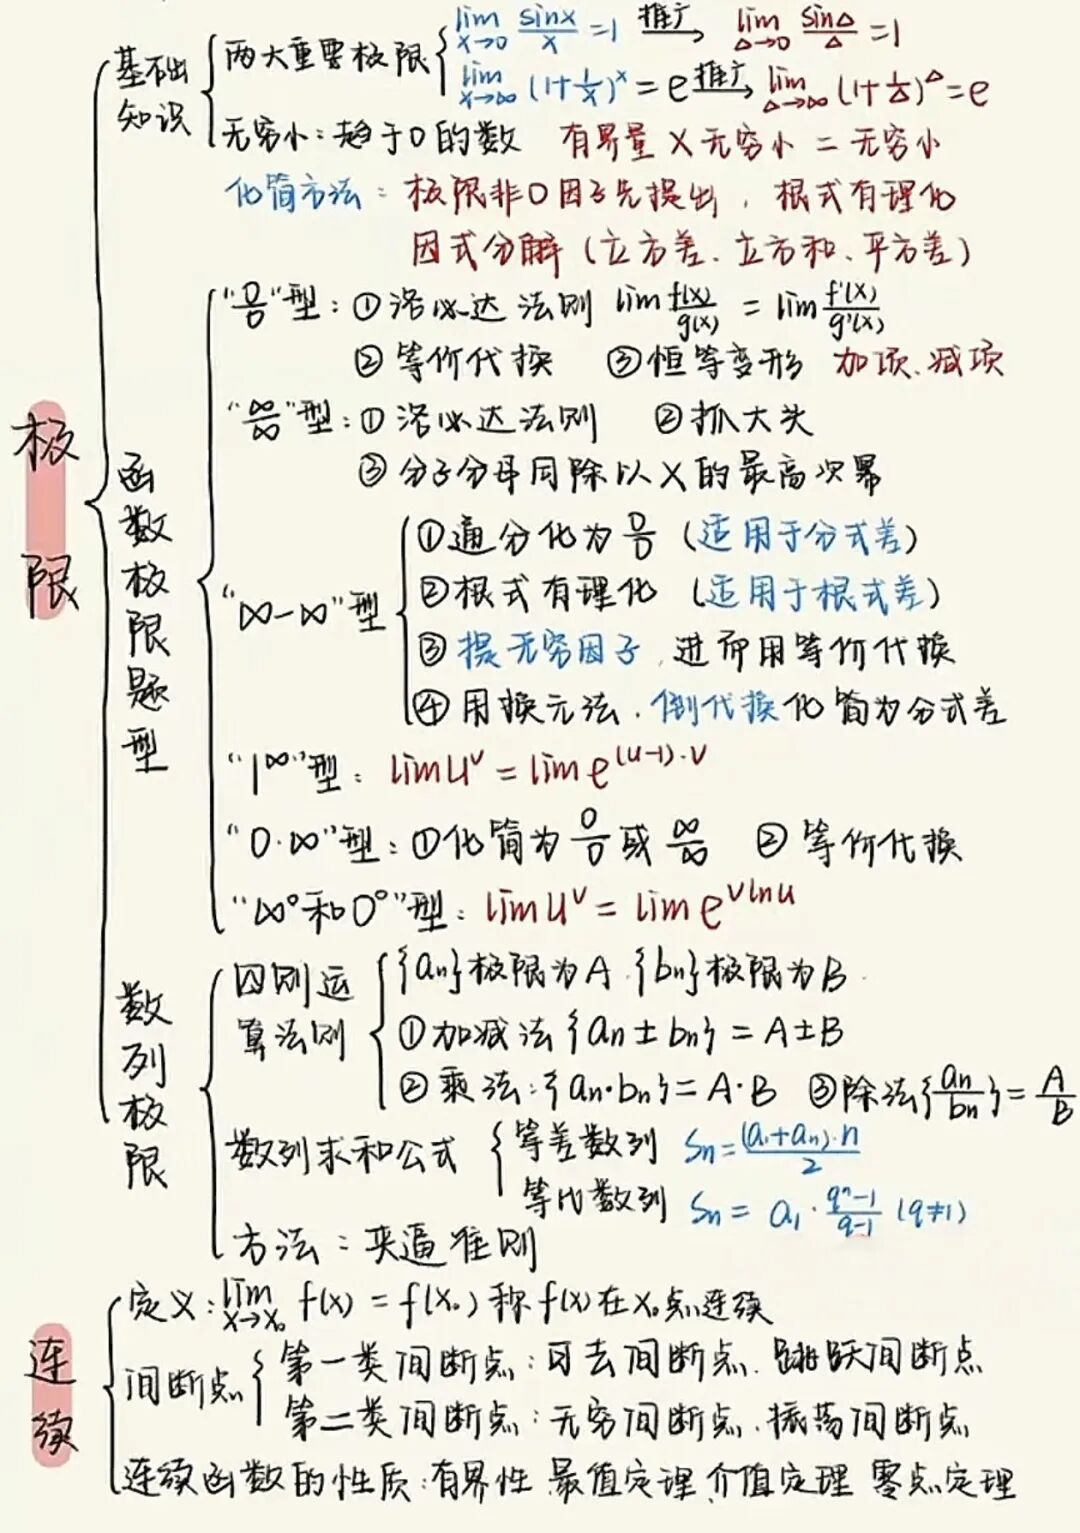 极限
基础知识
两大重要极限
lim x→0 sinx/x = 1 推广→ lim Δ→0 sinΔ/Δ = 1
lim x→∞ (1+1/x)^x = e 推广→ lim Δ→∞ (1+1/Δ)^Δ = e
无穷小：趋于0的数 有界量×无穷小=无穷小
化简方法：极限非0因子先提出，根式有理化
因式分解（立方差、立方和、平方差）
函数极限题型
"0/0"型：①洛必达法则 lim f(x)/g(x) = lim f'(x)/g'(x)
②等价代换 ③恒等变形 加项、减项
"∞/∞"型：①洛必达法则 ②抓大头
③分子分母同除以X的最高次幂
"∞-∞"型
①通分化为0/0（适用于分式差）
②根式有理化（适用于根式差）
③提无穷因子，进而用等价代换
④用换元法，倒代换化简为分式差
"1^∞"型：lim u^v = lim e^(u-1)·v
"0·∞"型：①化简为0/0或∞/∞ ②等价代换
"∞⁰和0⁰"型：lim u^v = lim e^vlnu
数列极限
四则运算法则
{an}极限为A.{bn}极限为B.
①加减法{an±bn}=A±B
②乘法:{an·bn}=A·B ③除法{an/bn}=A/B
数列求和公式
等差数列 Sn=(a₁+an)·n/2
等比数列 Sn=a₁·(qⁿ-1)/(q-1) (q≠1)
方法：夹逼准则
连续
定义：lim x→x₀ f(x)=f(x₀)称f(x)在x₀点连续
间断点
第一类间断点：可去间断点、跳跃间断点
第二类间断点：无穷间断点、振荡间断点
连续函数的性质：有界性 最值定理 介值定理 零点定理